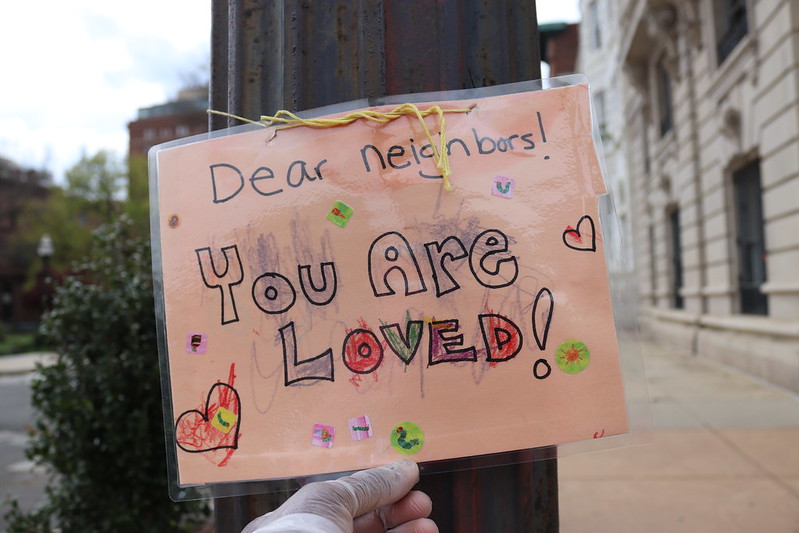 Dear neighbors!
You Are
LOVED!